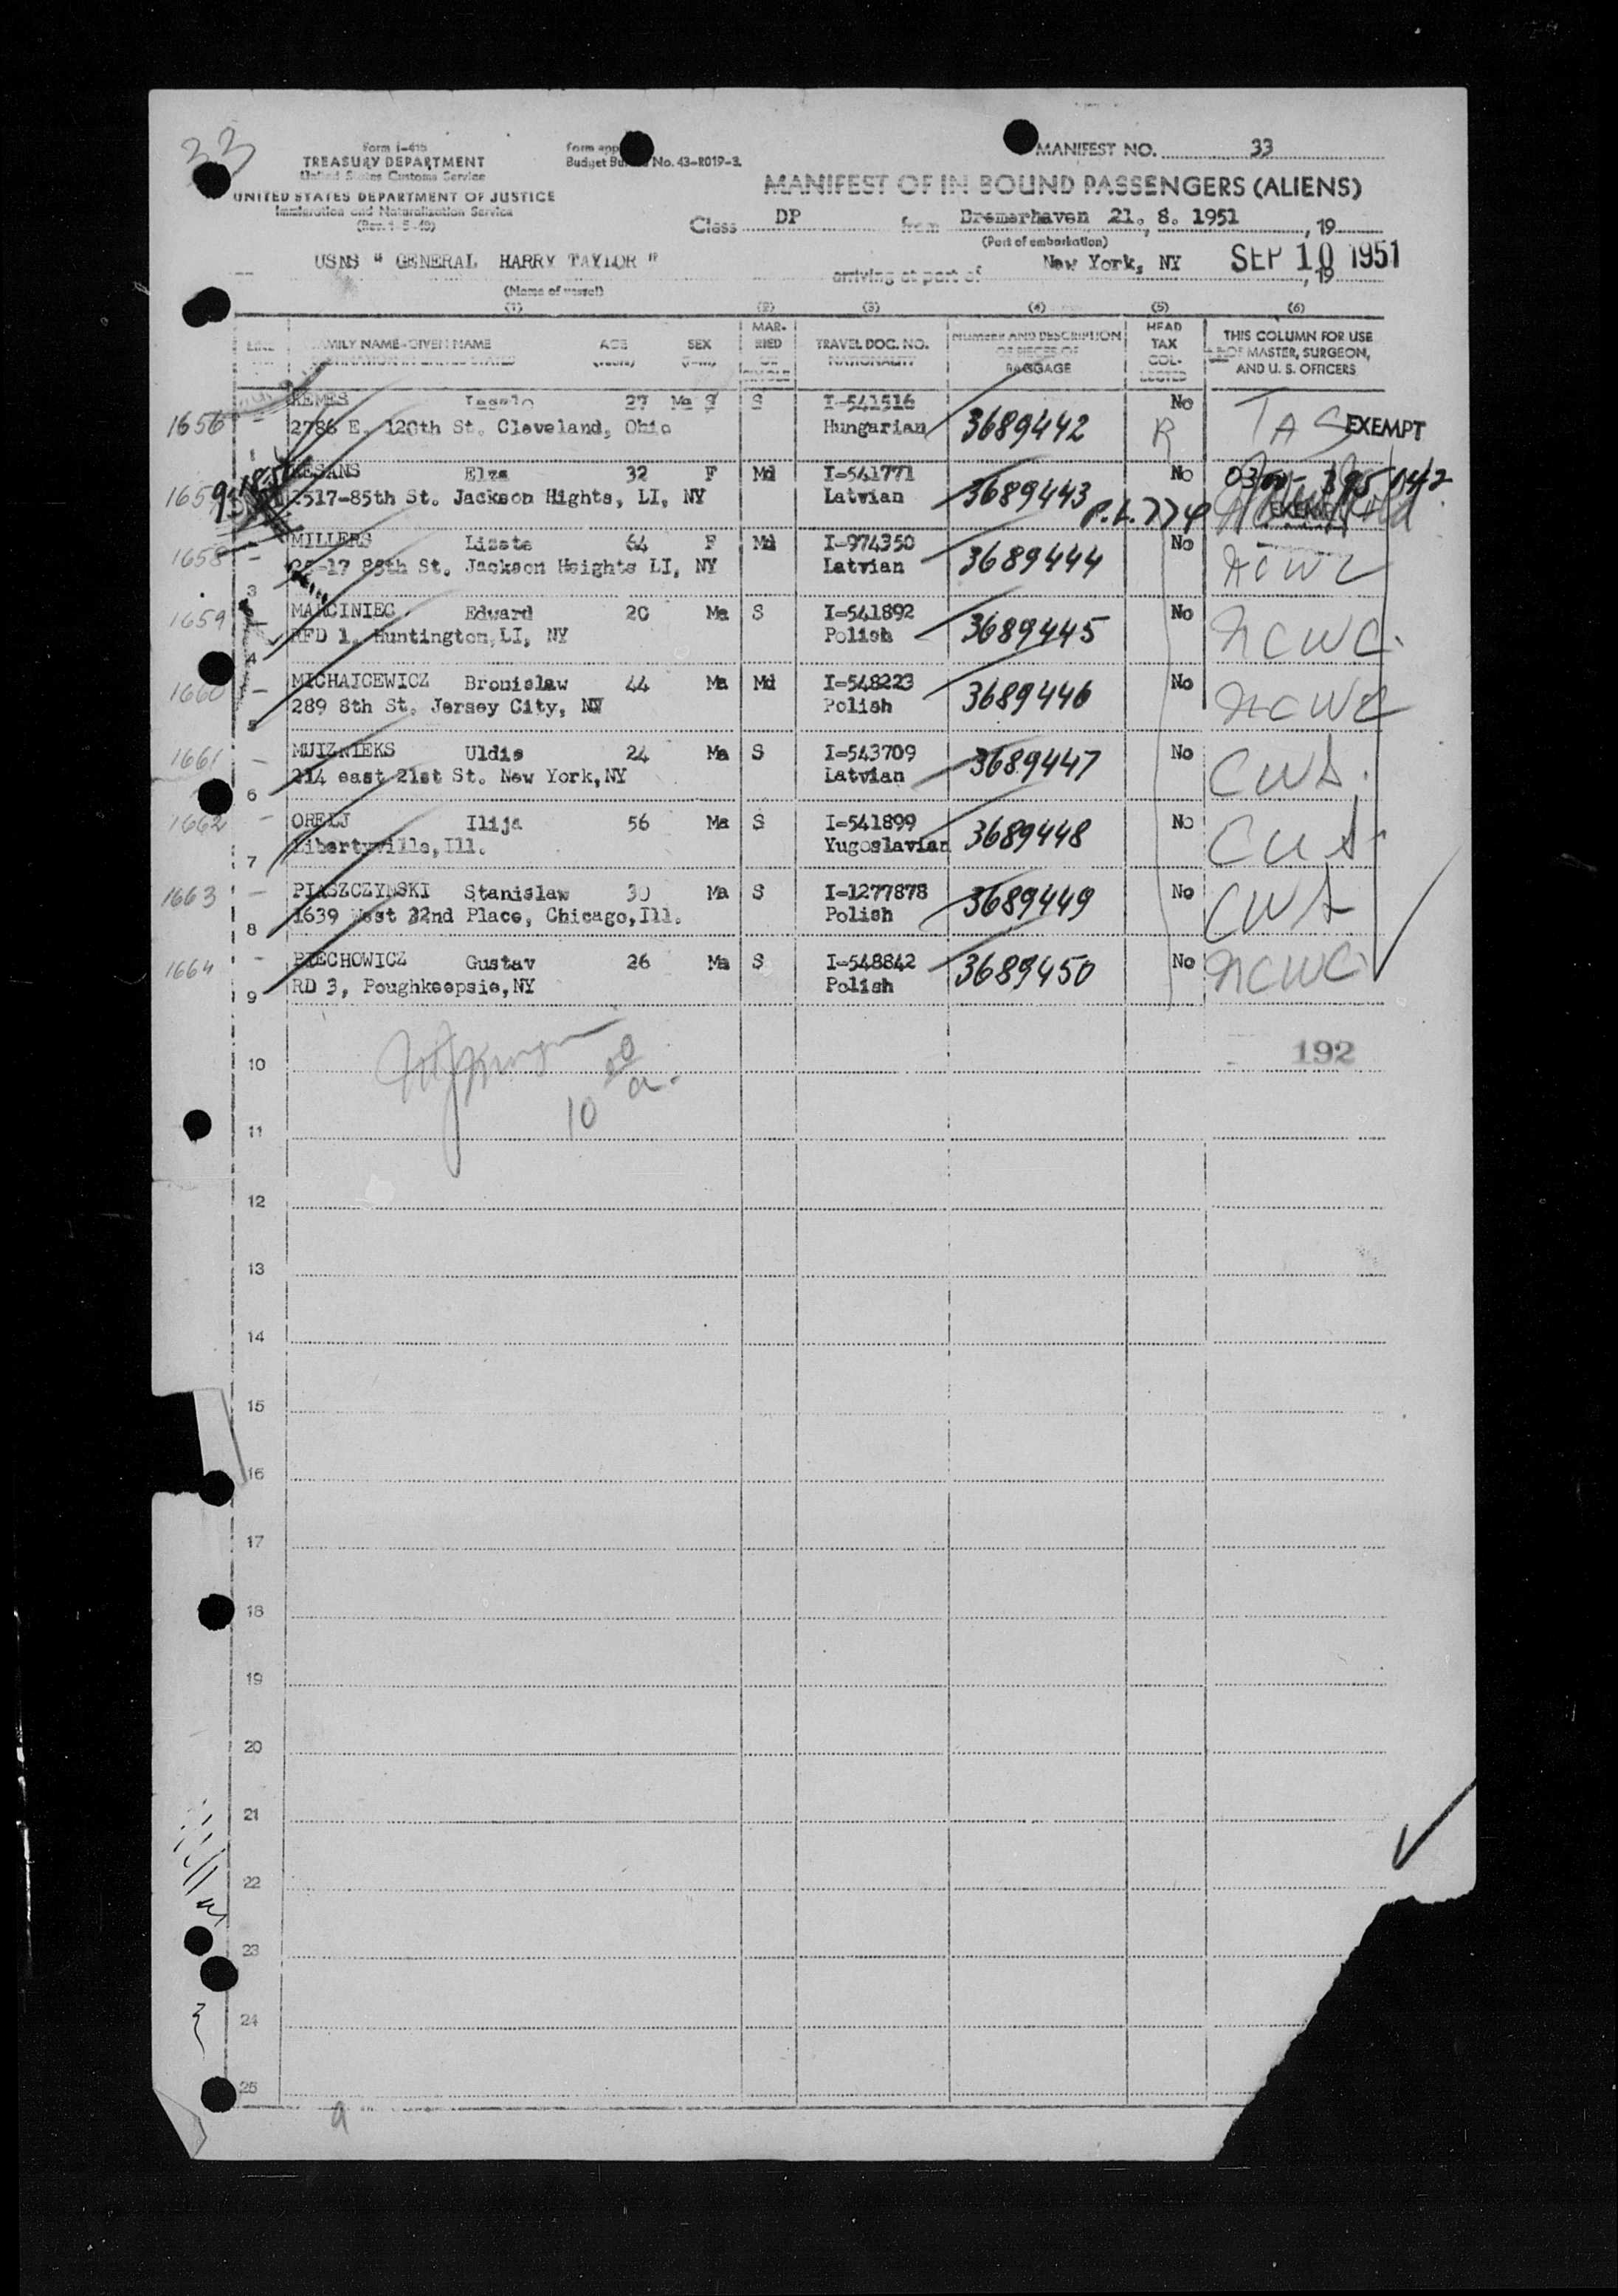 33
Form I-415
TREASURY DEPARTMENT
United States Customs Service
UNITED STATES DEPARTMENT OF JUSTICE
Immigration and Naturalization Service
Form app
Budget Bu No. 43-R019-3.
MANIFEST NO. 33
MANIFEST OF IN-BOUND PASSENGERS (ALIENS)
Class DP from Bremerhaven 21. 8. 1951, 19
(Port of embarkation)
USNS " GENERAL HARRY TAYLOR " arriving at port of New York, NY SEP 10 1951, 19
(Name of vessel)
(1) (2) (3) (4) (5) (6)
LINE FAMILY NAME-GIVEN NAME AGE SEX MARRIED OR SINGLE TRAVEL DOC. NO. NATIONALITY NUMBER AND DESCRIPTION OF PIECES OF BAGGAGE HEAD TAX COLLECTED THIS COLUMN FOR USE OF MASTER, SURGEON, AND U. S. OFFICERS
DESTINATION IN UNITED STATES (Years) (F-M)
1656 Laszlo 27 Ma S I-541516 No
2786 E. 120th St. Cleveland, Ohio Hungarian 3689442 R TAS EXEMPT
1
Elza 32 F Md I-541771 No
2517-85th St. Jackson Hights, LI, NY Latvian 3689443 P.L.774
1658 MILLERS Lizete 64 F Md I-974350 No
-17 85th St. Jackson Heights LI, NY Latvian 3689444
3
1659 MARCINIEC Edward 20 Ma S I-541892 No
RFD 1, Huntington, LI, NY Polish 3689445 NCWC
4
1660 MICHAICEWICZ Bronislaw 44 Ma Md I-548223 No
289 8th St. Jersey City, NY Polish 3689446 NCWC
5
1661 MUIZNIEKS Uldis 24 Ma S I-543709 No
214 east 21st St. New York, NY Latvian 3689447 CWS
6
1662 ORELJ Ilija 56 Ma S I-541899 No
Libertyville, Ill. Yugoslavian 3689448 CWS
7
1663 PIASZCZYNSKI Stanislaw 30 Ma S I-1277878 No
1639 West 22nd Place, Chicago, Ill. Polish 3689449 CWS
8
1664 PIECHOWICZ Gustav 26 Ma S I-548842 No
RD 3, Poughkeepsie, NY Polish 3689450 NCWC
9
10 192
10 00 a.
11
12
13
14
15
16
17
18
19
20
21
22
23
24
25
9